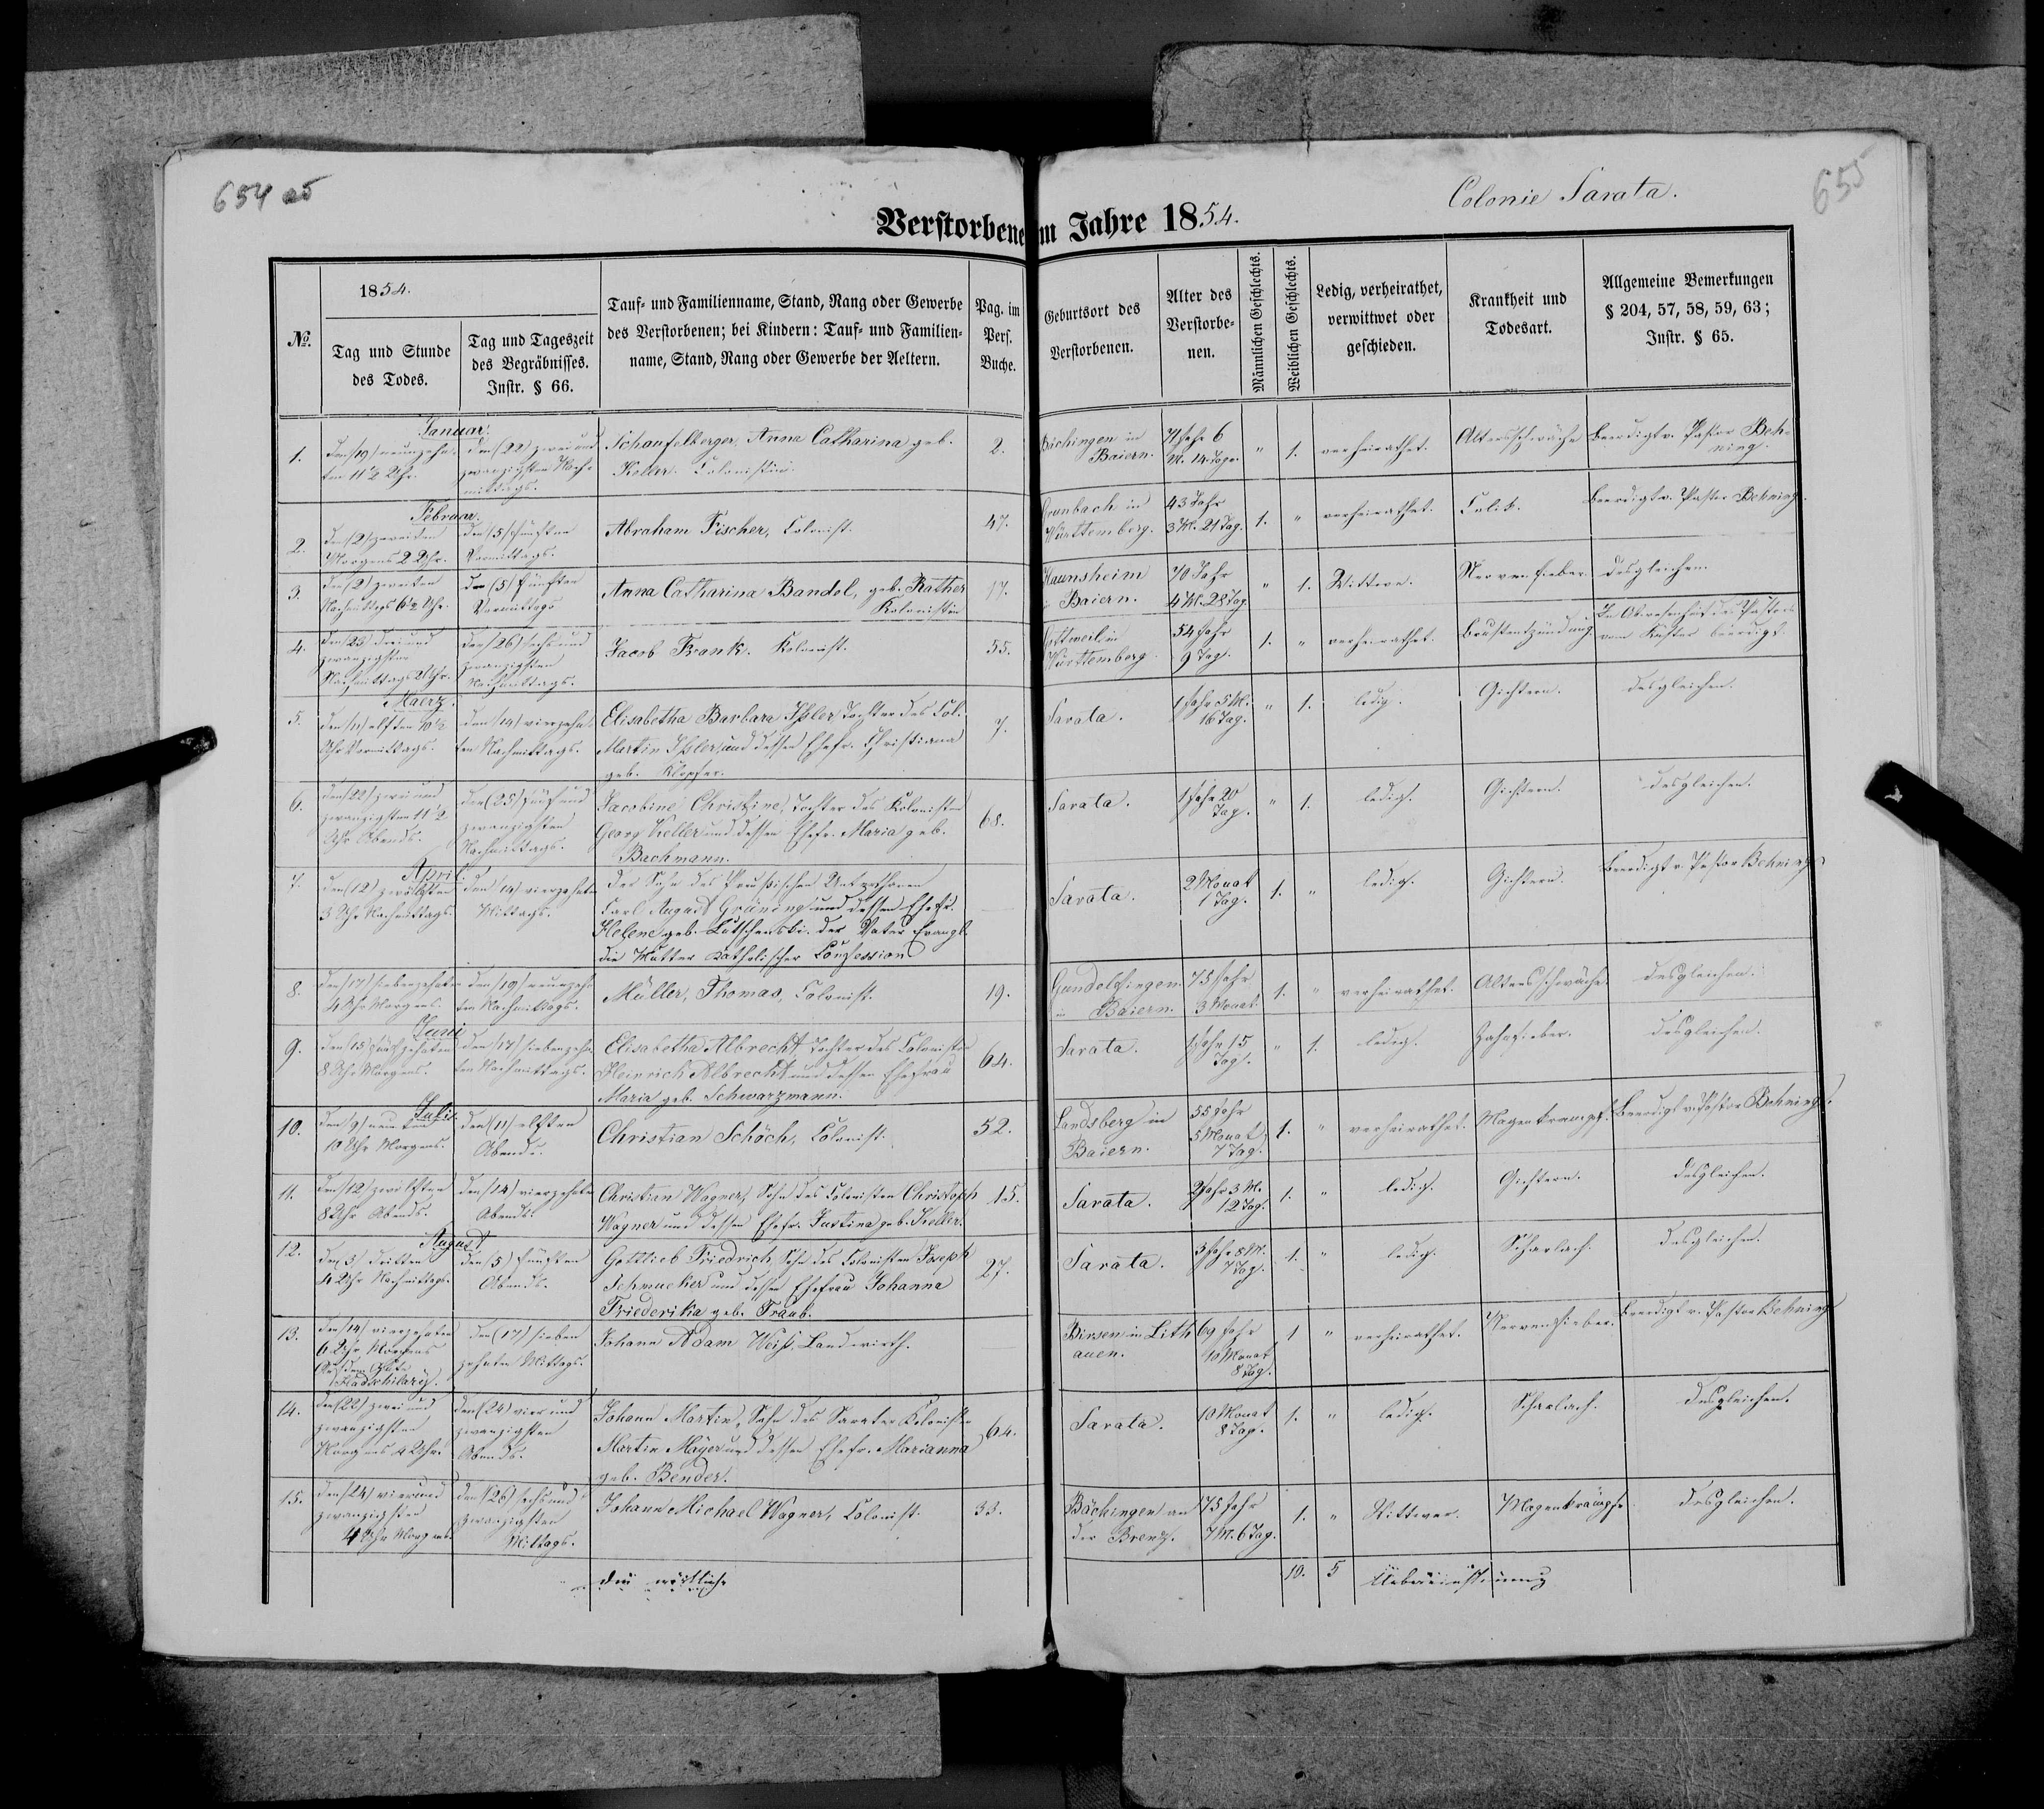 654 ob
655
Colonie Sarata.
Verstorbene im Jahre 1854.
№.
1854.
Tag und Stunde
des Todes.
Tag und Tageszeit
des Begräbnisses.
Instr. § 66.
Tauf- und Familienname, Stand, Rang oder Gewerbe
des Verstorbenen; bei Kindern: Tauf- und Familien-
name, Stand, Rang oder Gewerbe der Aeltern.
Pag. im
Pers.
Buche.
Geburtsort des
Verstorbenen.
Alter des
Verstorbe-
nen.
Männlichen Geschlechts.
Weiblichen Geschlechts.
Ledig, verheirathet,
verwittwet oder
geschieden.
Krankheit und
Todesart.
Allgemeine Bemerkungen
§ 204, 57, 58, 59, 63;
Instr. § 65.
Januar.
1.
den (19) neunzehn-
ten 11 1/2 Uhr.
den (22) zwei und
zwanzigsten Nach-
mittags.
Schaufelberger, Anna Catharina geb.
Keller. Colonistin.
2.
Bächingen in
Baiern.
71 Jahr 6
M. 14 Tage.
" 1.
verheirathet.
Altersschwäche
beerdigt v. Pastor Beh-
ning.
Februar.
2.
den (2) zweiten
Morgens 2 Uhr.
den (5) fünften
Vormittags.
Abraham Fischer, Colonist.
47.
Grunbach in
Württemberg.
43 Jahr
3 M. 21 Tag.
1. "
verheirathet.
beerdigt v. Pastor Behning.
3.
den (2) zweiten
Nachmittags 6 1/2 Uhr.
den (5) fünften
Vormittags
Anna Catharina Bandel, geb. Rather
Kolonistin
17.
Haunsheim
in Baiern.
70 Jahr
4 M. 28 Tag
" 1.
Wittwe.
Nervenfieber.
desgleichen.
4.
den (23) drei und
zwanzigsten
Nachmittags 2 Uhr.
den (26) sechs und
zwanzigsten
Nachmittags.
Jacob Frank. Kolonist.
55.
Württemberg.
54 Jahr
9 Tag.
1. "
verheirathet.
Brustentzündung
In Abwesenheit des Pastors
vom Küster beerdigt.
Maerz.
5.
den (11) elften 10 1/2
Uhr Vormittags.
den (14) vierzehn-
ten Nachmittags.
Elisabetha Barbara Ißler Tochter des Col.
Martin Ißler, und dessen Ehefr. Christiana
geb. Klopfer.
7.
Sarata.
1 Jahr 5 M.
16 Tag.
" 1.
ledig.
Gichtern.
desgleichen.
6.
den (22) zwei und
zwanzigsten 11 1/2
Uhr Abends.
den (25) fünf und
zwanzigsten
Nachmittags.
Jacobine Christine, Tochter des Kolonisten
Georg Keller und dessen Ehefr. Maria geb.
Bachmann.
68.
Sarata.
1 Jahr 20
Tag.
" 1.
ledig.
Gichtern.
desgleichen.
April.
7.
den (12) zwölften
3 Uhr Nachmittags.
den (14) vierzehnten
Mittags.
Der Sohn des Preußischen Unterthanen
Carl August Grüning und dessen Ehefr.
Helene geb. Lutschenski. der Vater Evangl.
die Mutter katholischer Confession
Sarata.
2 Monat
1 Tag.
1. "
ledig.
Gichtern.
Beerdigt v. Pastor Behning
8.
den (17) siebenzehnten
4 Uhr Morgens.
den (19) neunzehn-
ten Nachmittags.
Müller, Thomas, Colonist.
19.
Gundelfingen
in Baiern.
75 Jahr
3 Monat.
1. "
verheirathet.
Altersschwäche.
desgleichen.
Juni
9.
den (15) fünfzehnten
8 Uhr Morgens.
den (17) siebenzehn-
ten Nachmittags.
Elisabetha Albrecht, Tochter des Colonisten
Heinrich Albrecht und dessen Ehefrau
Maria geb. Schwarzmann.
64.
Sarata.
1 Jahr 15
Tag.
" 1.
ledig.
Zahnfieber.
desgleichen.
Juli.
10.
den (9) neunten
10 Uhr Morgens.
den (11) elften
Abends.
Christian Schöch, Colonist.
52.
Landsberg in
Baiern.
55 Jahr
5 Monat
7 Tag.
1. "
verheirathet.
Magenkrampf.
Beerdigt v. Pastor Behning.
11.
den (12) zwölften
8 Uhr Abends.
den (14) vierzehnten
Abends.
Christian Wagner, Sohn des Colonisten Christoph
Wagner und dessen Ehefr. Justina geb. Keller.
15.
Sarata.
2 Jahr 3 M.
12 Tag.
1. "
ledig.
Gichtern.
desgleichen.
August
12.
den (3) dritten
4 Uhr Nachmittags.
den (5) fünften
Abends.
Gottlieb Friedrich, Sohn des Colonisten Joseph
Schmucker und dessen Ehefrau Johanna
Friederika geb. Traub.
27.
Sarata.
3 Jahr 8 M.
7 Tag.
1. "
ledig.
Scharlach.
desgleichen.
13.
den (14) vierzehnten
6 Uhr Morgens
Auf dem Gute
den (17) sieben
zehnten Mittags.
Johann Adam Weiß, Landwirth.
Birsen in Lith
auen.
69 Jahr
10 Monat
8 Tag.
1 "
verheirathet.
Nervenfieber.
Beerdigt v. Pastor Behning
14.
den (22) zwei und
zwanzigsten
Morgens 4 Uhr.
den (24) vier und
zwanzigsten
Abends.
Johann Martin, Sohn des Sarater Kolonisten
Martin Mayer und dessen Ehefr. Marianna
geb. Bender.
64.
Sarata.
10 Monat
8 Tag.
1. "
ledig.
Scharlach.
desgleichen.
15.
den (24) vier und
zwanzigsten
4 Uhr Morgens
den (26) sechs und
zwanzigsten
Mittags.
Johann Michael Wagner, Colonist.
33.
Bächingen an
der Brenz.
75 Jahr
7 M. 6 Tag.
1. "
Wittwer.
Magenkrämpfe
desgleichen.
die wörtliche
10. 5
Uebereinstimmung